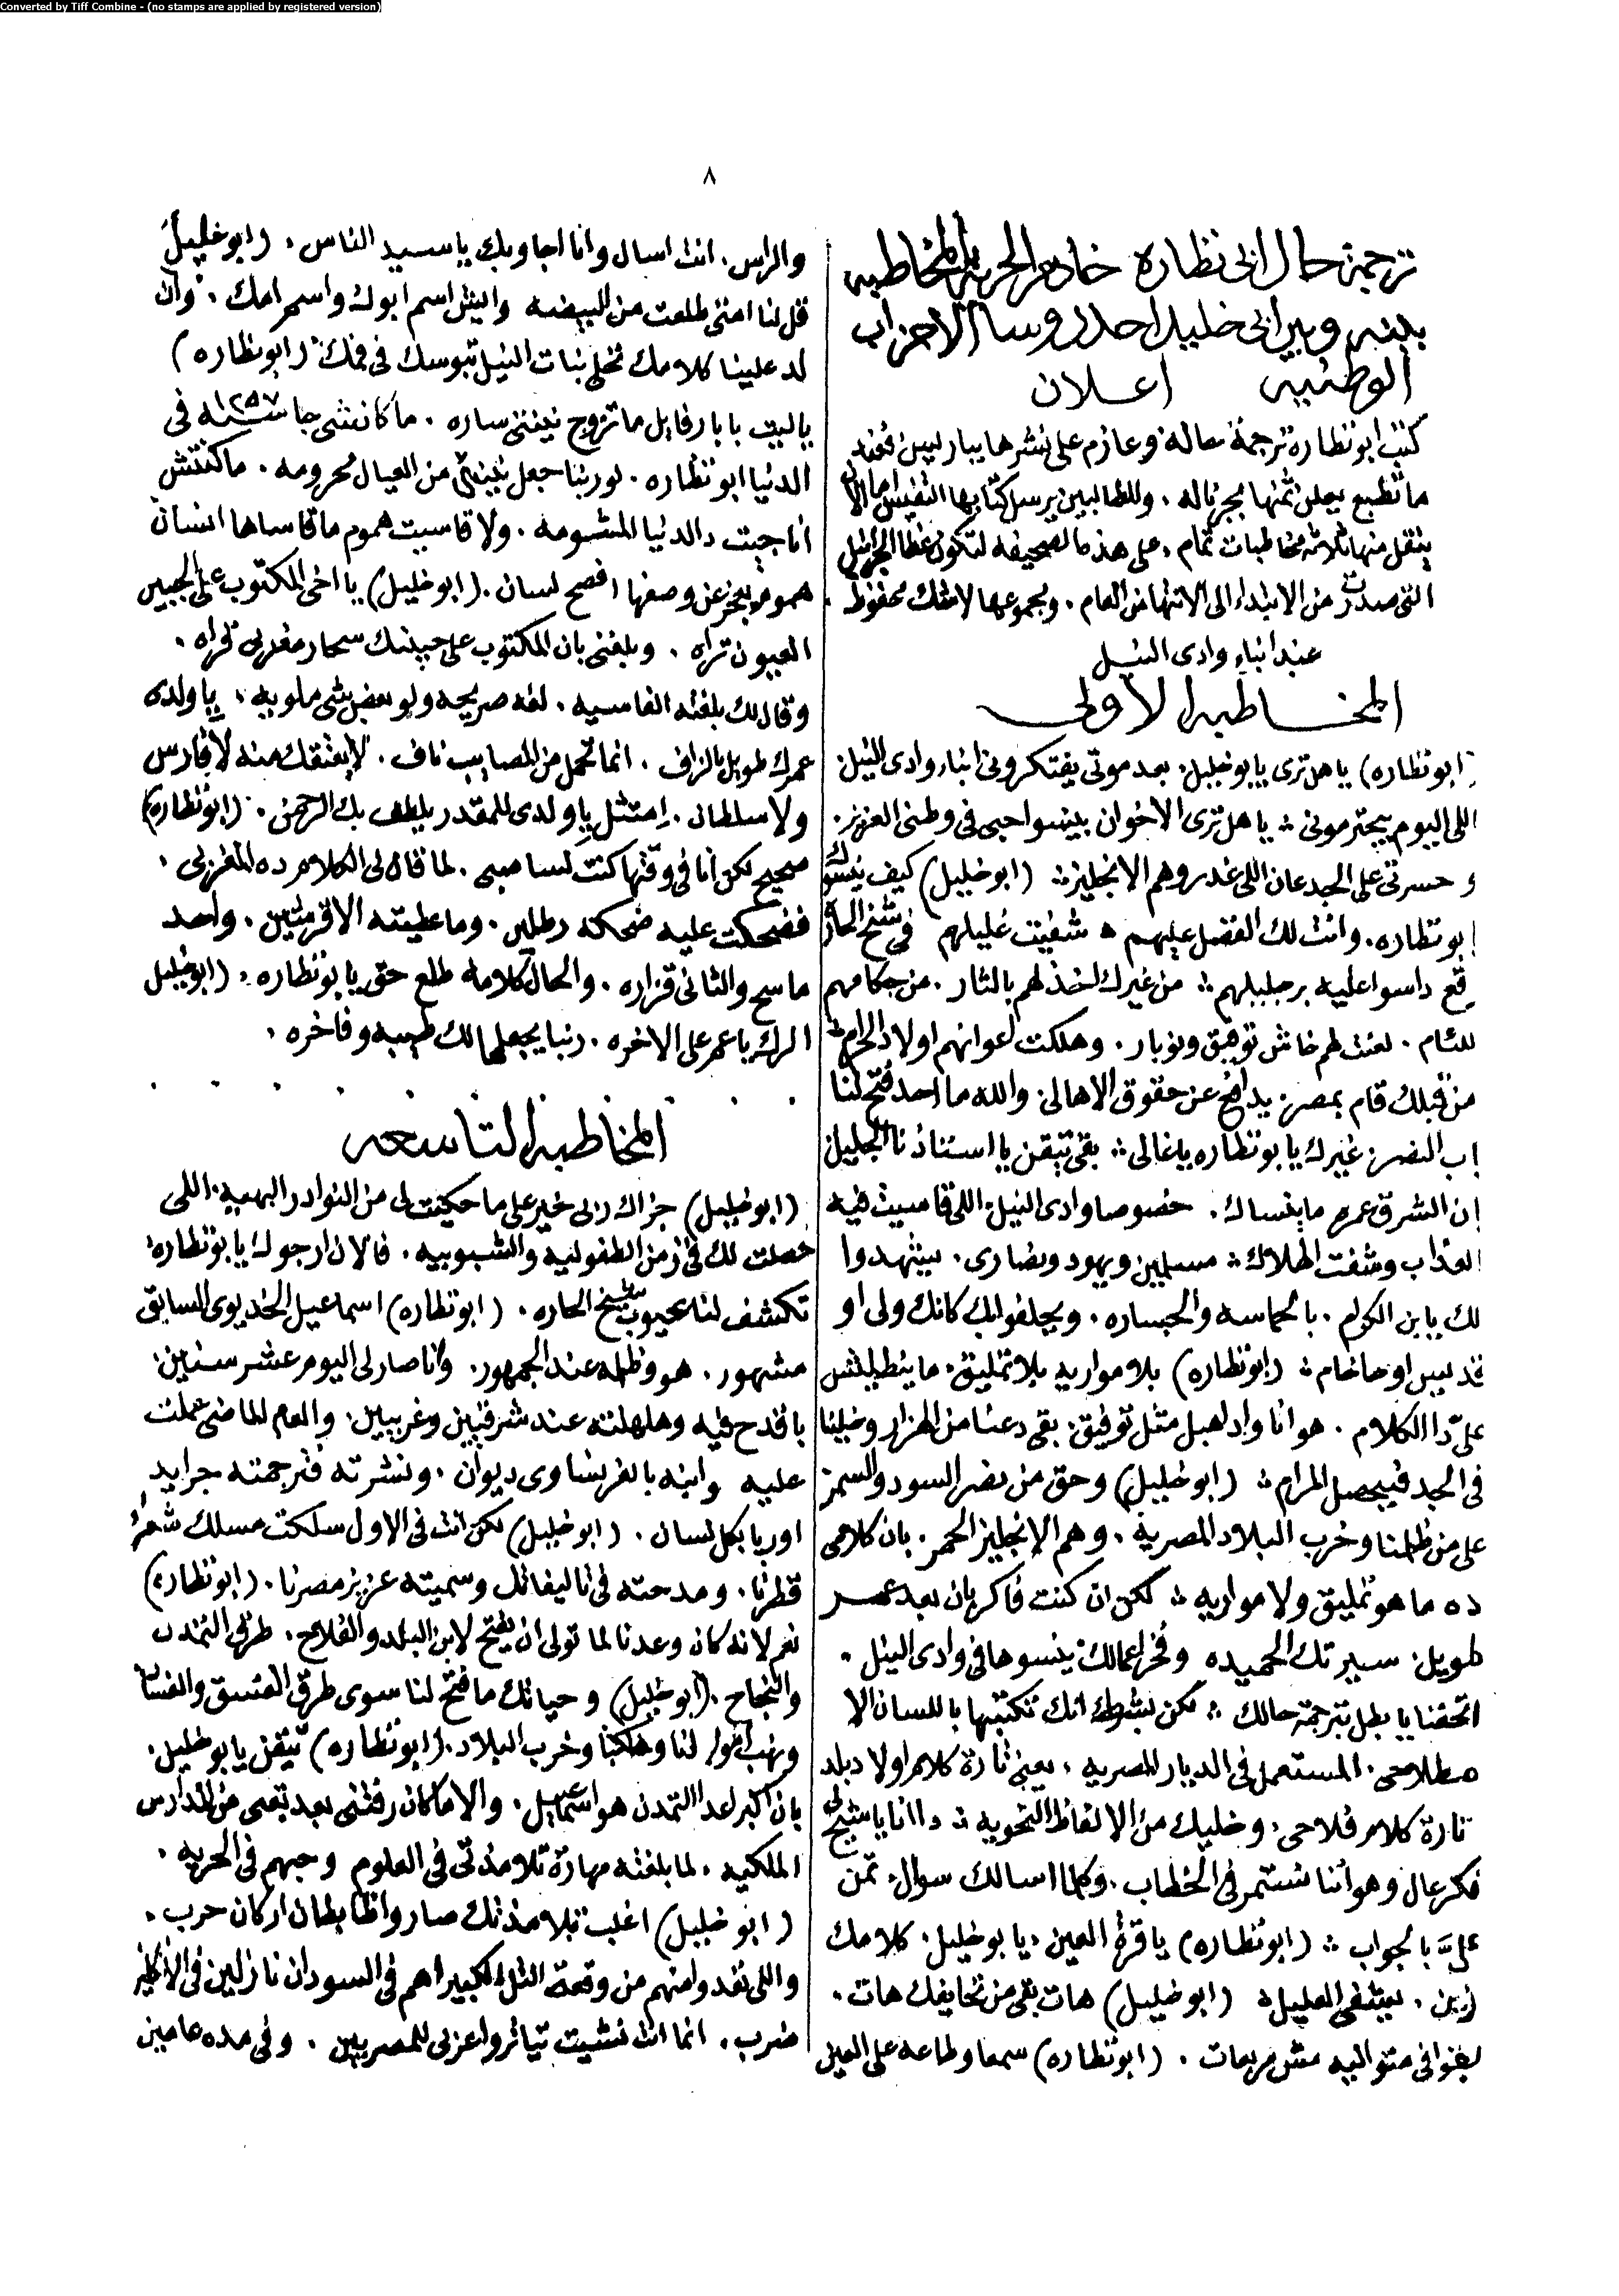 Converted by Tiff Combine - (no stamps are applied by registered version)
٨
ترجمة حال ابى نظاره خادم الحريه بالمخاطبه
بينه وبين ابى خليل احد روسا الاحزاب
الوطنيه اعلان
كتب ابو نظاره ترجمة حاله وعازم على نشرها بباريس فعند
ما تطبع يعلن ثمنها بجرناله . وللطالبين يرسل كتابها النفيس اما الان
ينقل منها ثلاثه مخاطبات تمام . على هذه الصحيفه لتكون غطا الجرانيل
التى صدرت من الابتداء الى الانتها من العام . ومجموعها لاشك محفوظ
عند ابناء وادى النيل
المخاطبه الاولى
(ابو نظاره) يا هل ترى يابو خليل . بعد موتى يفتكرونى ابناء وادى النيل .
اللى اليوم بيحترمونى ؞ يا هل ترى الاخوان بينسوا حبى فى وطنى العزيز .
و حسرتى على الجدعان اللى غدروهم الانجليز ؞ (ابو خليل) كيف ينسوك
ابو نظاره . وانت لك الفضل عليهم ؞ شفيت غليلهم فى شيخ الحاره
وقع داسوا عليه برجليهم ؞ من غيرك اخذ لهم بالثار . من حكامهم
اللئام . لعنت لهم خاش توفيق ونوبار . وهلكت اعوانهم اولاد الحرام ؞
من قبلك قام بمصر . يدافع عن حقوق الاهالى . والله ما احد فتح لنا
باب النصر . غيرك يابو نظاره يا غالى ؞ بقى تيقن يا استاذنا الجليل
ان الشرق عمره ما ينساك . خصوصا وادى النيل . اللى قاسيت فيه
العذاب وشفت الهلاك ؞ مسلمين ويهود ونصارى . بيشهدوا
لك يابن الكرام . بالحماسه والجساره . ويحلفوا بك كانك ولى او
قديس او حاخام ؞ (ابو نظاره) بلا مواريه بلا تمليق . ما ينطليش
علىّ دا الكلام . هو انا واد اهبل مثل توفيق . بقى دعنا من الهزار وخلينا
فى الجد فيحصل المرام ؞ (ابو خليل) وحق من نصر السود والسمر
على من ظلمنا وخرب البلاد المصريه . وهم الانجليز الحمر . بان كلامى
ده ما هو تمليق ولا مواريه ؞ لكن ان كنت فاكر بان بعد عمر
طويل . سيرتك الحميده وفخر اعمالك ينسوها فى وادى النيل .
اتحفنا يا بطل بترجمة حالك ؞ لكن بشرط انك تكتبها باللسان الا
صطلاحى . المستعمل فى الديار المصريه . يعنى تارة كلام اولاد بلد
تارة كلام فلاحى . وخليك من الالفاظ النحويه ؞ دا انا يا شيخى
فكر عال وهو اننا نستمر فى الخطاب . وكلما اسالك سوال . تمن
علىّ بالجواب ؞ (ابو نظاره) يا قرة العين . يابو خليل . كلامك
زين . يشفى العليل ؞ (ابو خليل) هات بقى من تحايفك هات .
بقوافى متواليه مش مربعات . (ابو نظاره) سمعا وطاعه على العين
والراس . انت اسال وانا اجاوبك يا سيد الناس . (ابو خليل)
قل لنا امتى طلعت من البيضه وايش اسم ابوك واسم امك . وان
لد علينا كلامك نخلى بنات النيل تبوسك فى فمك . (ابو نظاره)
ياليت بابا رفايل ما تزوج نينتى ساره . ما كانشى جا سنه ١٢٥٧ فى
الدنيا ابو نظاره . لو ربنا جعل نينتى من العيال محرومه . ما كنتش
انا جيت دالدنيا المشومه . ولا قاسيت هموم ما قاساها انسان
هموم يعجز عن وصفها افصح لسان . (ابو خليل) يا اخى المكتوب على الجبين
العيون تراه . وبلغنى بان المكتوب على جبينك سحار مغربى قراه .
وقال لك بلغته الفاسيه . لغه صريحه ولو بعض شى ملويه . يا ولدى
عمرك طويل بالزاف . انما تحمل من المصايب ناف . لا يعتقك منه لا فارس
ولا سلطان . امتثل يا ولدى للمقدر يلطف بك الرحمن . (ابو نظاره)
صحيح لكن انا فى وقتها كنت لسا صبى . لما قال لى الكلام ده المغربى .
فضحكت عليه ضحكه رطلين . وما عطيته الا قرشين . واحد
ماسح والثانى قزاره . والحال كلامه طلع حق يابو نظاره . (ابو خليل)
الرك يا عم على الاخره . ربنا يجعلها لك طيبه وفاخره .
المخاطبه التاسعه
(ابو خليل) جزاك ربى خير على ما حكيت لى من النوادر البهيه . اللى
حصلت لك فى زمن الطفوليه والشبوبيه . فالان ارجوك يابو نظاره
تكشف لنا عيوب شيخ الحاره . (ابو نظاره) اسماعيل الخديوى السابق
مشهور . هو وظلمه عند الجمهور . وانا صار لى اليوم عشر سنين .
باقدح فيه وهلهلته عند شرقيين وغربيين . والعام الماضى عملت
عليه وابنه بالفرنساوى ديوان . ونشرته فترجمته جرايد
اوربا بكل لسان . (ابو خليل) لكن انت فى الاول سلكت مسلك شعرا
قطرنا . ومدحته فى تاليفاتك وسميته عزيز مصرنا . (ابو نظاره)
نعم لانه كان وعدنا لما تولى ان يفتح لابن البلد والفلاح . طرق التمدن
والنجاح . (ابو خليل) وحياتك ما فتح لنا سوى طرق الفسق والفساد
ونهب اموالنا وهلكنا وخرب البلاد . (ابو نظاره) تيقن يابو خليل .
بان اكبر اعدا التمدن هو اسماعيل . والا ما كان رفتنى بعد تعبى من المدارس
الملكيه . لما بلغته مهارة تلامذتى فى العلوم وحبهم فى الحريه .
(ابو خليل) اغلب تلامذتك صاروا ظابطان اركان حرب .
واللى نفدوا منهم من وقعة التل الكبير اهم فى السودان نازلين فى الانكليز
ضرب . انما انت نشيت تياترو عربى للمصريين . وفى مده عامين